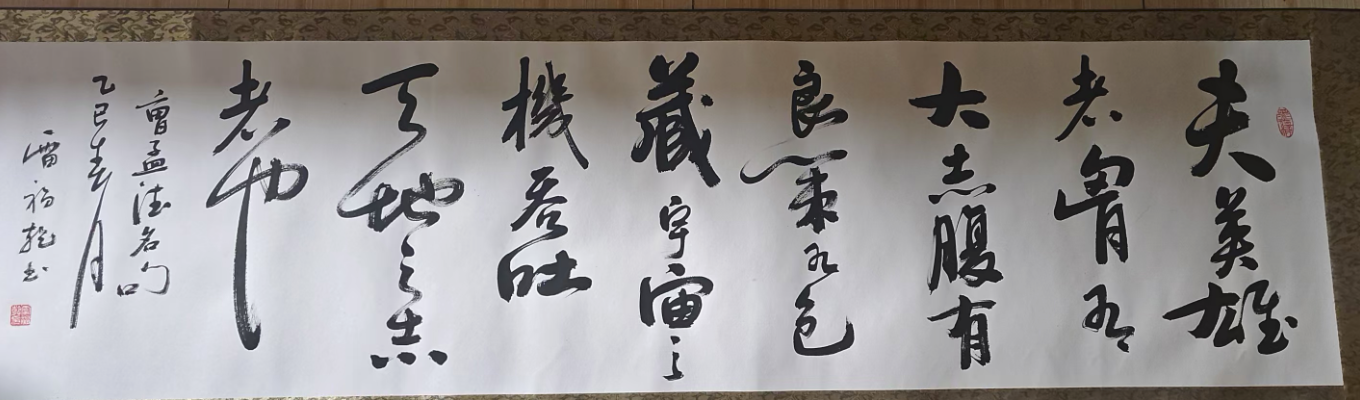 夫英雄
者胷有
大志腹有
良策有包
藏宇宙之
機吞吐
天地之志
者也
曹孟德名句
乙巳春月
雷福乾书